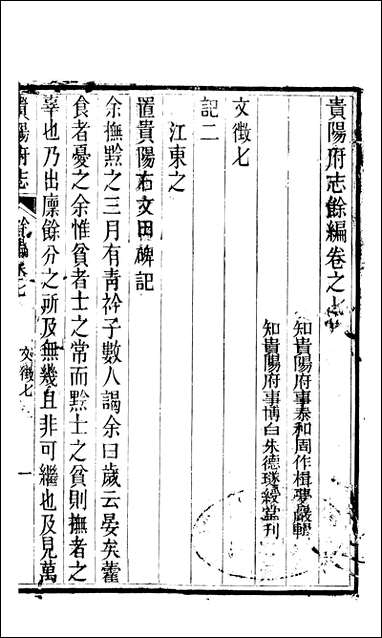 貴陽府志餘編卷之七
知貴陽府事泰和周作楫夢巖輯
知貴陽府事博白朱德璲綬堂刊
文徵七
記二
江東之
置貴陽右文田碑記
余撫黔之三月有青衿子數人謁余曰歲云晏矣藿
食者憂之余惟貧者士之常而黔士之貧則撫者之
辜也乃出廩餘分之所及無幾且非可繼也及見萬
貴陽府志
餘編卷七
文徵七
一